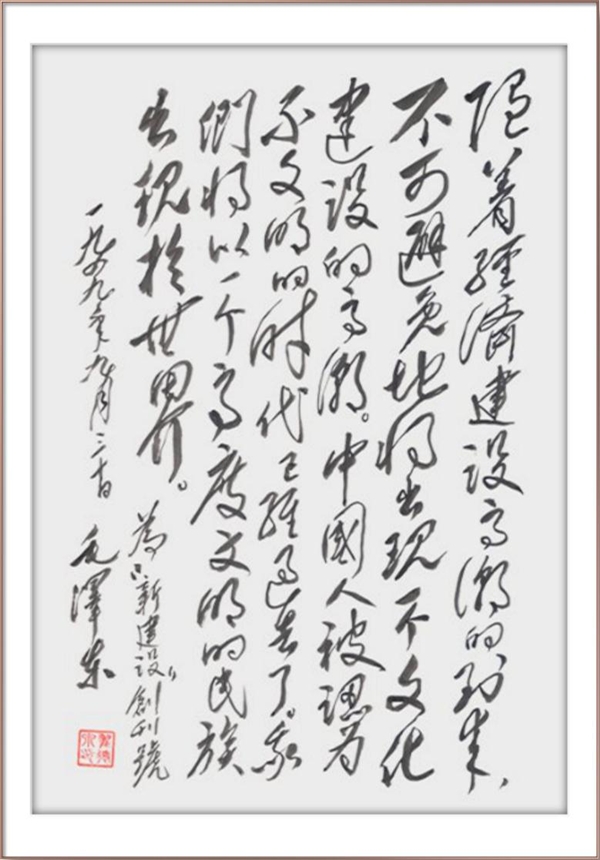 随着經濟建設高潮的到来、
不可避免地将出現一个文化
建設的高潮。中國人被認为
不文明的時代已經過去了。我
們将以一个高度文明的民族
出現於世界。
為“新建設”創刊號
一九四九年九月二十日
毛澤东